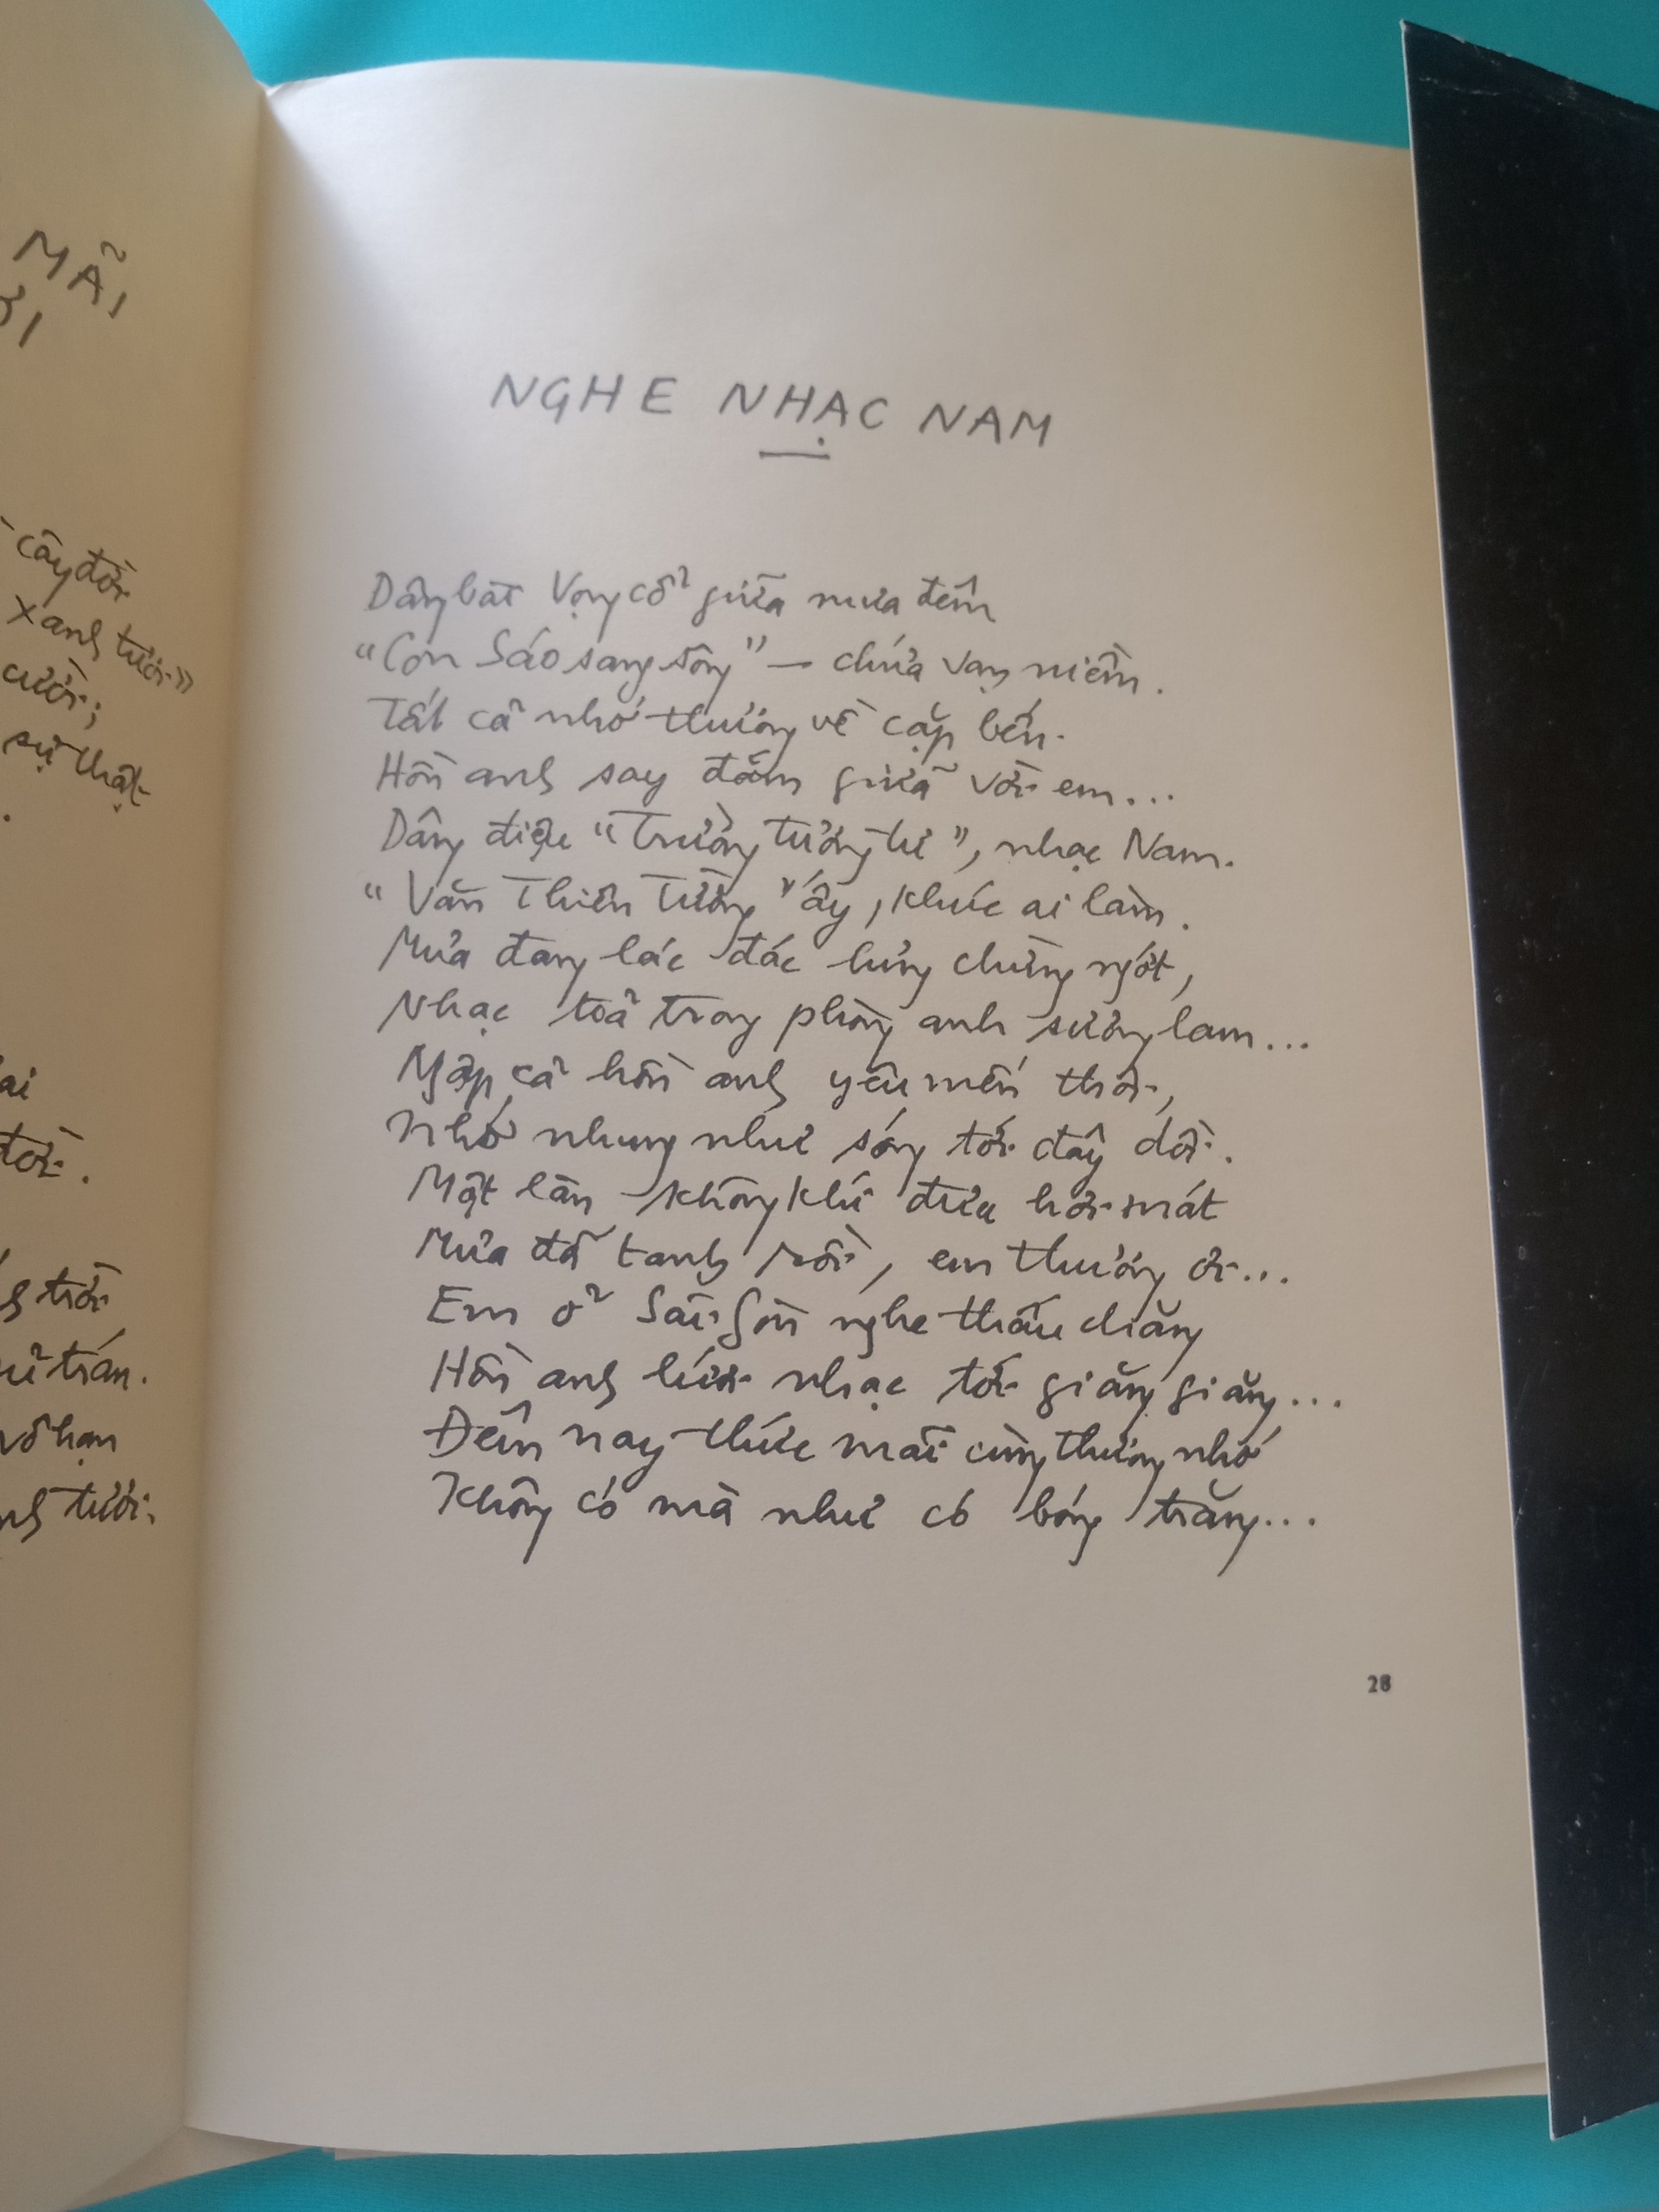 MÃI
ƠI
cây đời
xanh tươi"
cười;
sự thật
.
ai
tới.
trời
trán.
vô hạn
tươi;
NGHE NHẠC NAM
Dâng bài Vọng cổ giữa mưa đêm
"Con Sáo sang sông" — chứa vạn niềm.
Tất cả nhớ thương về cặp bến.
Hồn anh say đắm giữa vời em...
Dâng điệu "Trường tương tư", nhạc Nam.
"Văn Thiên Tường" ấy, khúc ai làm.
Mưa đang lác đác lưng chừng ngớt,
Nhạc toả trong phòng anh sương lam...
Ngập cả hồn anh yêu mến thôi,
Nhớ nhung như sóng tới đây dồi.
Một làn không khí đưa hơi mát
Mưa đã tạnh rồi, em thương ơi...
Em ở Sài Gòn nghe thấu chăng
Hồn anh lưới nhạc tới giăng giăng...
Đêm nay thức mãi cùng thương nhớ
Không có mà như có bóng trăng...
28